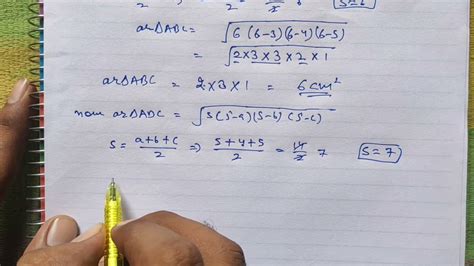 2 2 2 S=6
arΔABC = √6(6-3)(6-4)(6-5)
= √2×3×3×2×1
arΔABC = 2×3×1 = 6cm²
now arΔADC = √s(s-a)(s-b)(s-c)
S = a+b+c/2 ⇒ 5+4+5/2 = 14/2 7 S=7